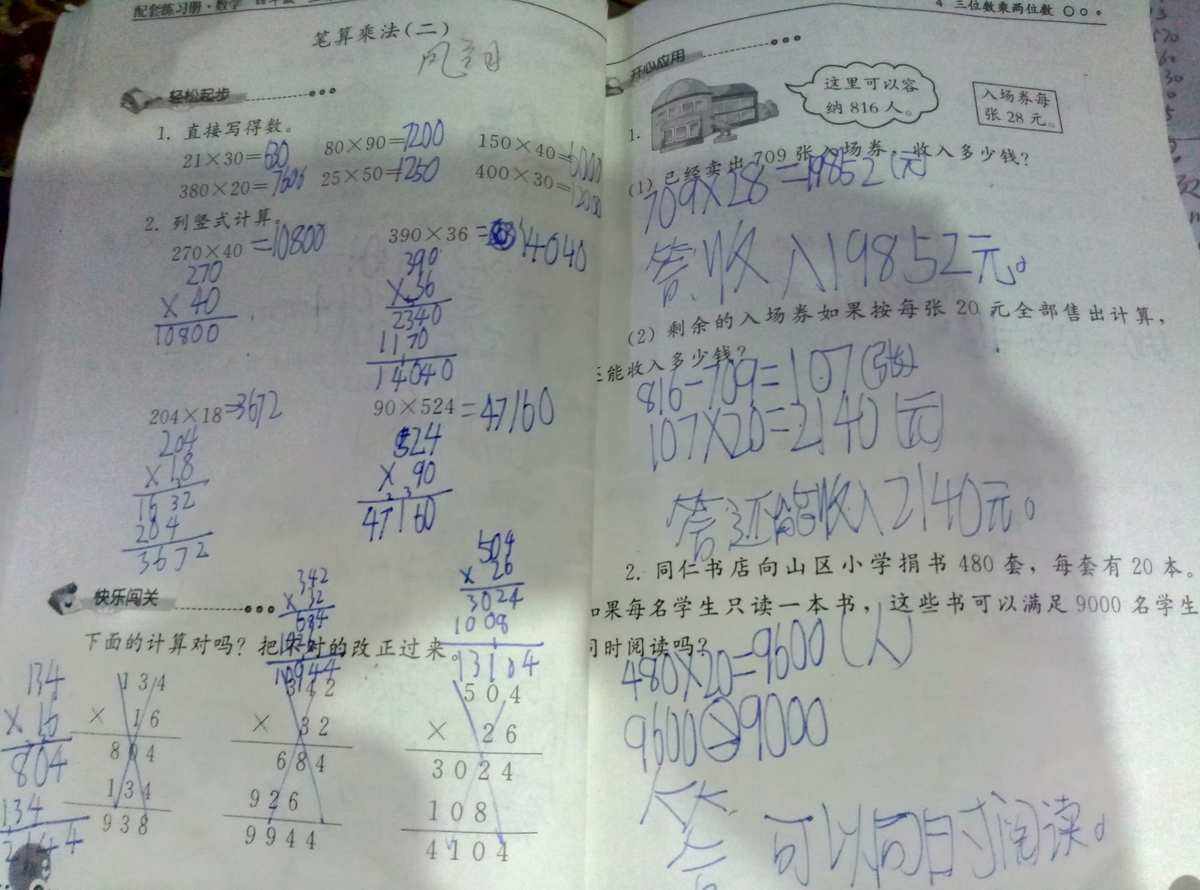 配套练习册·数学
笔算乘法(二)
轻松起步
1. 直接写得数。
21×30=630 80×90=7200 150×40=6000
380×20=7600 25×50=1250 400×30=12000
2. 列竖式计算。
270×40=10800 390×36=14040
270
×40
10800
390
×36
2340
1170
14040
204×18=3672 90×524=47160
204
×18
1632
204
3672
524
×90
47160
快乐闯关
下面的计算对吗?把不对的改正过来。
134
×16
804
134
2144
134
×16
804
134
938
342
×32
684
1026
10944
342
×32
684
926
9944
504
×26
3024
1008
13104
504
×26
3024
108
4104
4 三位数乘两位数
开心应用
1.
这里可以容
纳816人。
入场券每
张28元。
(1) 已经卖出709张入场券,收入多少钱?
709×28=19852(元)
答:收入19852元。
(2) 剩余的入场券如果按每张20元全部售出计算,
还能收入多少钱?
816-709=107(张)
107×20=2140(元)
答:还能收入2140元。
2. 同仁书店向山区小学捐书480套,每套有20本。
如果每名学生只读一本书,这些书可以满足9000名学生
同时阅读吗?
480×20=9600(人)
9600>9000
答:可以同时阅读。